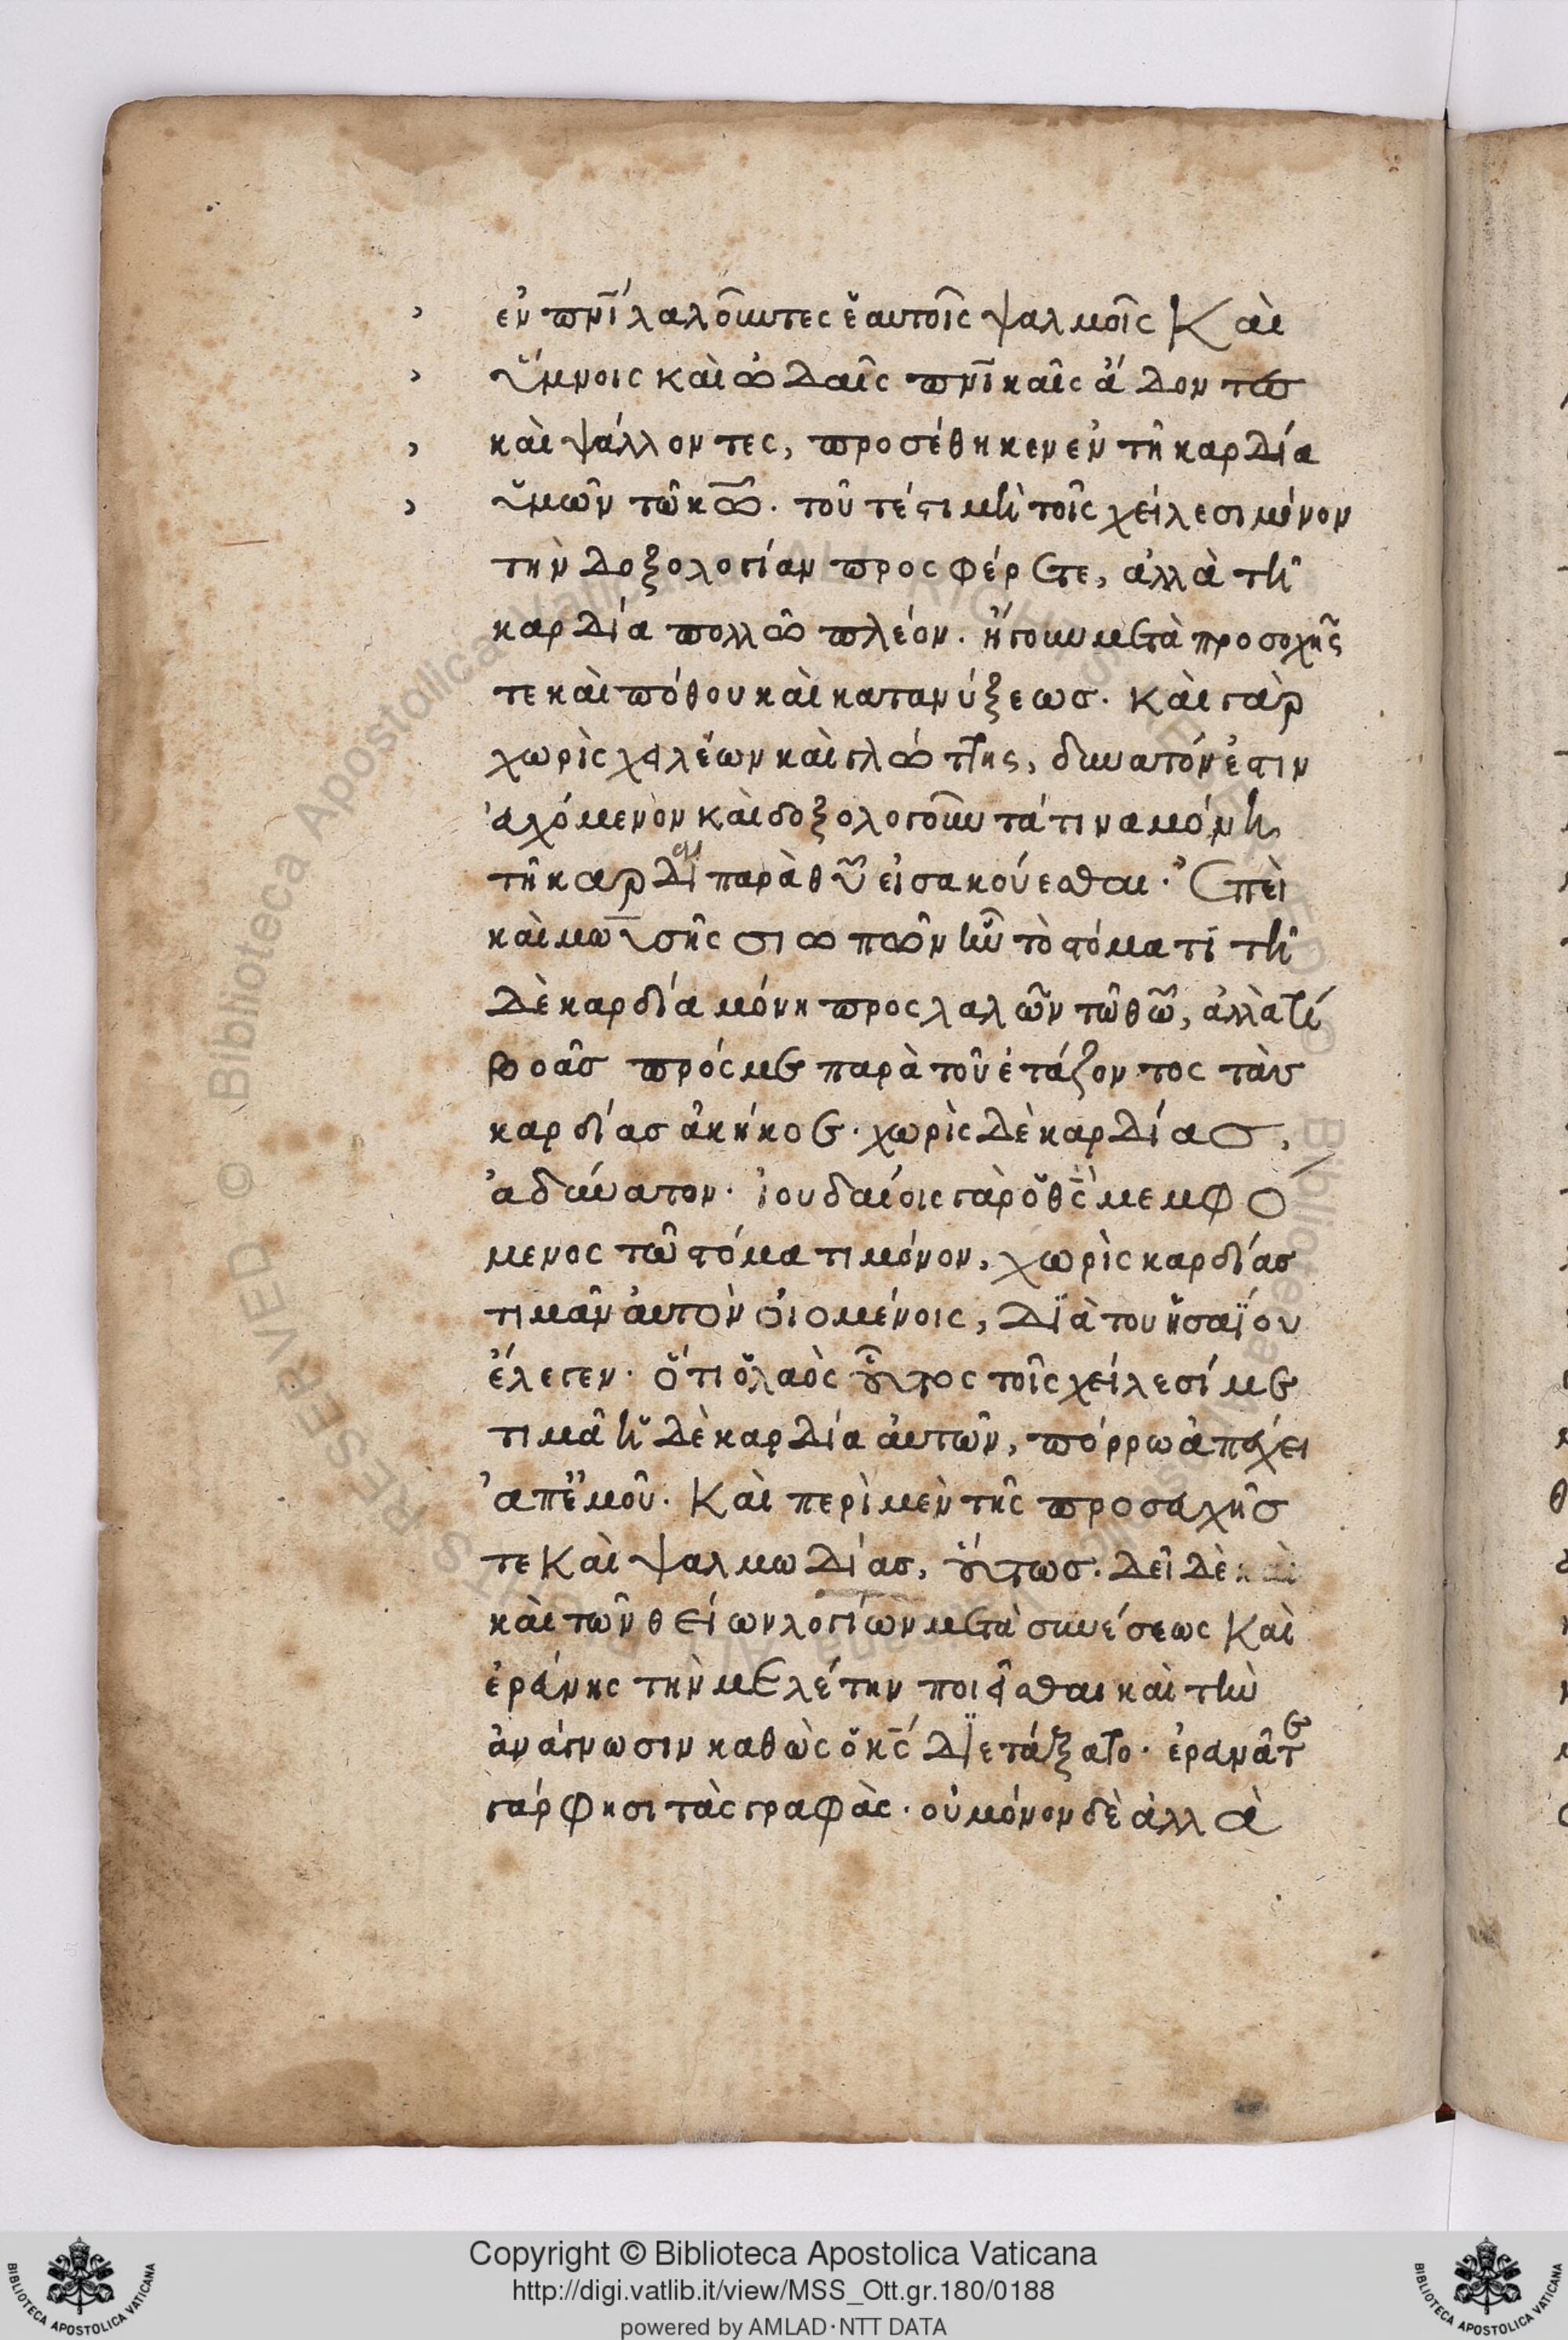 ἐν πνῑ λαλοῦντες ἑαυτοῖς ψαλμοῖς Καὶ
ὕμνοις καὶ ὠδαῖς πνῑκαῖς ἄδοντες
καὶ ψάλλοντες, προσέθηκεν ἐν τῆ καρδία
ὑμῶν τῶ κω̄. τοῦτέστι μὴ τοῖς χείλεσι μόνον
τὴν δοξολογίαν προσφέρετε, ἀλλὰ τῆ
καρδία πολλῶ πλέον. ἤγουν μετὰ προσοχῆς
τε καὶ πόθου καὶ κατανύξεως. καὶ γὰρ
χωρὶς χειλέων καὶ γλώττης, δυνατόν ἐστιν
εὐχόμενον καὶ δοξολογοῦντά τινα μόνη
τῆ καρδία παρὰ θῡ εἰσακούεσθαι. Ἐπεὶ
καὶ μωϋσῆς σιωπῶν ἦν τὸ στόματι τῆ
δὲ καρδία μόνη προσλαλῶν τῶ θω̄, ἀλλὰ τί
βοᾶς πρός με παρὰ τοῦ ἐτάζοντος τὰς
καρδίας ἀκήκοε. χωρὶς δὲ καρδίας,
ἀδύνατον. ἰουδαίοις γὰρ ὁ θς̄ μεμφό
μενος τῶ στόματι μόνον, χωρὶς καρδίας
τιμᾶν αὐτὸν οἰομένοις, διὰ του ἡσαΐου
ἔλεγεν. ὅτι ὁ λαὸς οὗτος τοῖς χείλεσί με
τιμᾶ ἡ δὲ καρδία αὐτῶν, πόρρω ἀπέχει
ἀπ' ἐμοῦ. Καὶ περὶ μὲν τῆς προσευχῆς
τε Καὶ ψαλμωδίας, οὕτως. δεῖ δὲ καὶ
καὶ τῶν θείων λογίων μετὰ συνέσεως Καὶ
ἐρεύνης τὴν μελέτην ποιεῖσθαι καὶ τὴν
ἀνάγνωσιν καθὼς ὁ κς̄ διετάξατο. ἐρευνᾶτε
γάρ φησι τὰς γραφὰς. οὐ μόνον δὲ ἀλλὰ
Copyright © Biblioteca Apostolica Vaticana
http://digi.vatlib.it/view/MSS_Ott.gr.180/0188
powered by AMLAD·NTT DATA